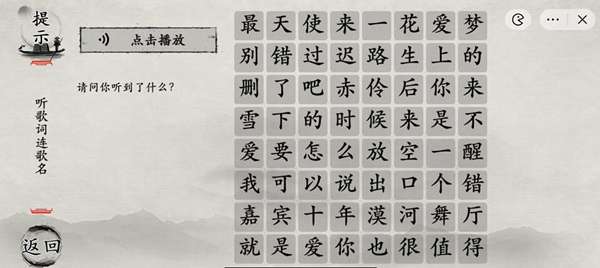 提示
点击播放
请问你听到了什么？
听歌词连歌名
返回
最天使来一花爱梦
别错过迟路生上的
删了吧赤伶后你来
雪下的时候来是不
爱要怎么放空一醒
我可以说出口个错
嘉宾十年漠河舞厅
就是爱你也很值得